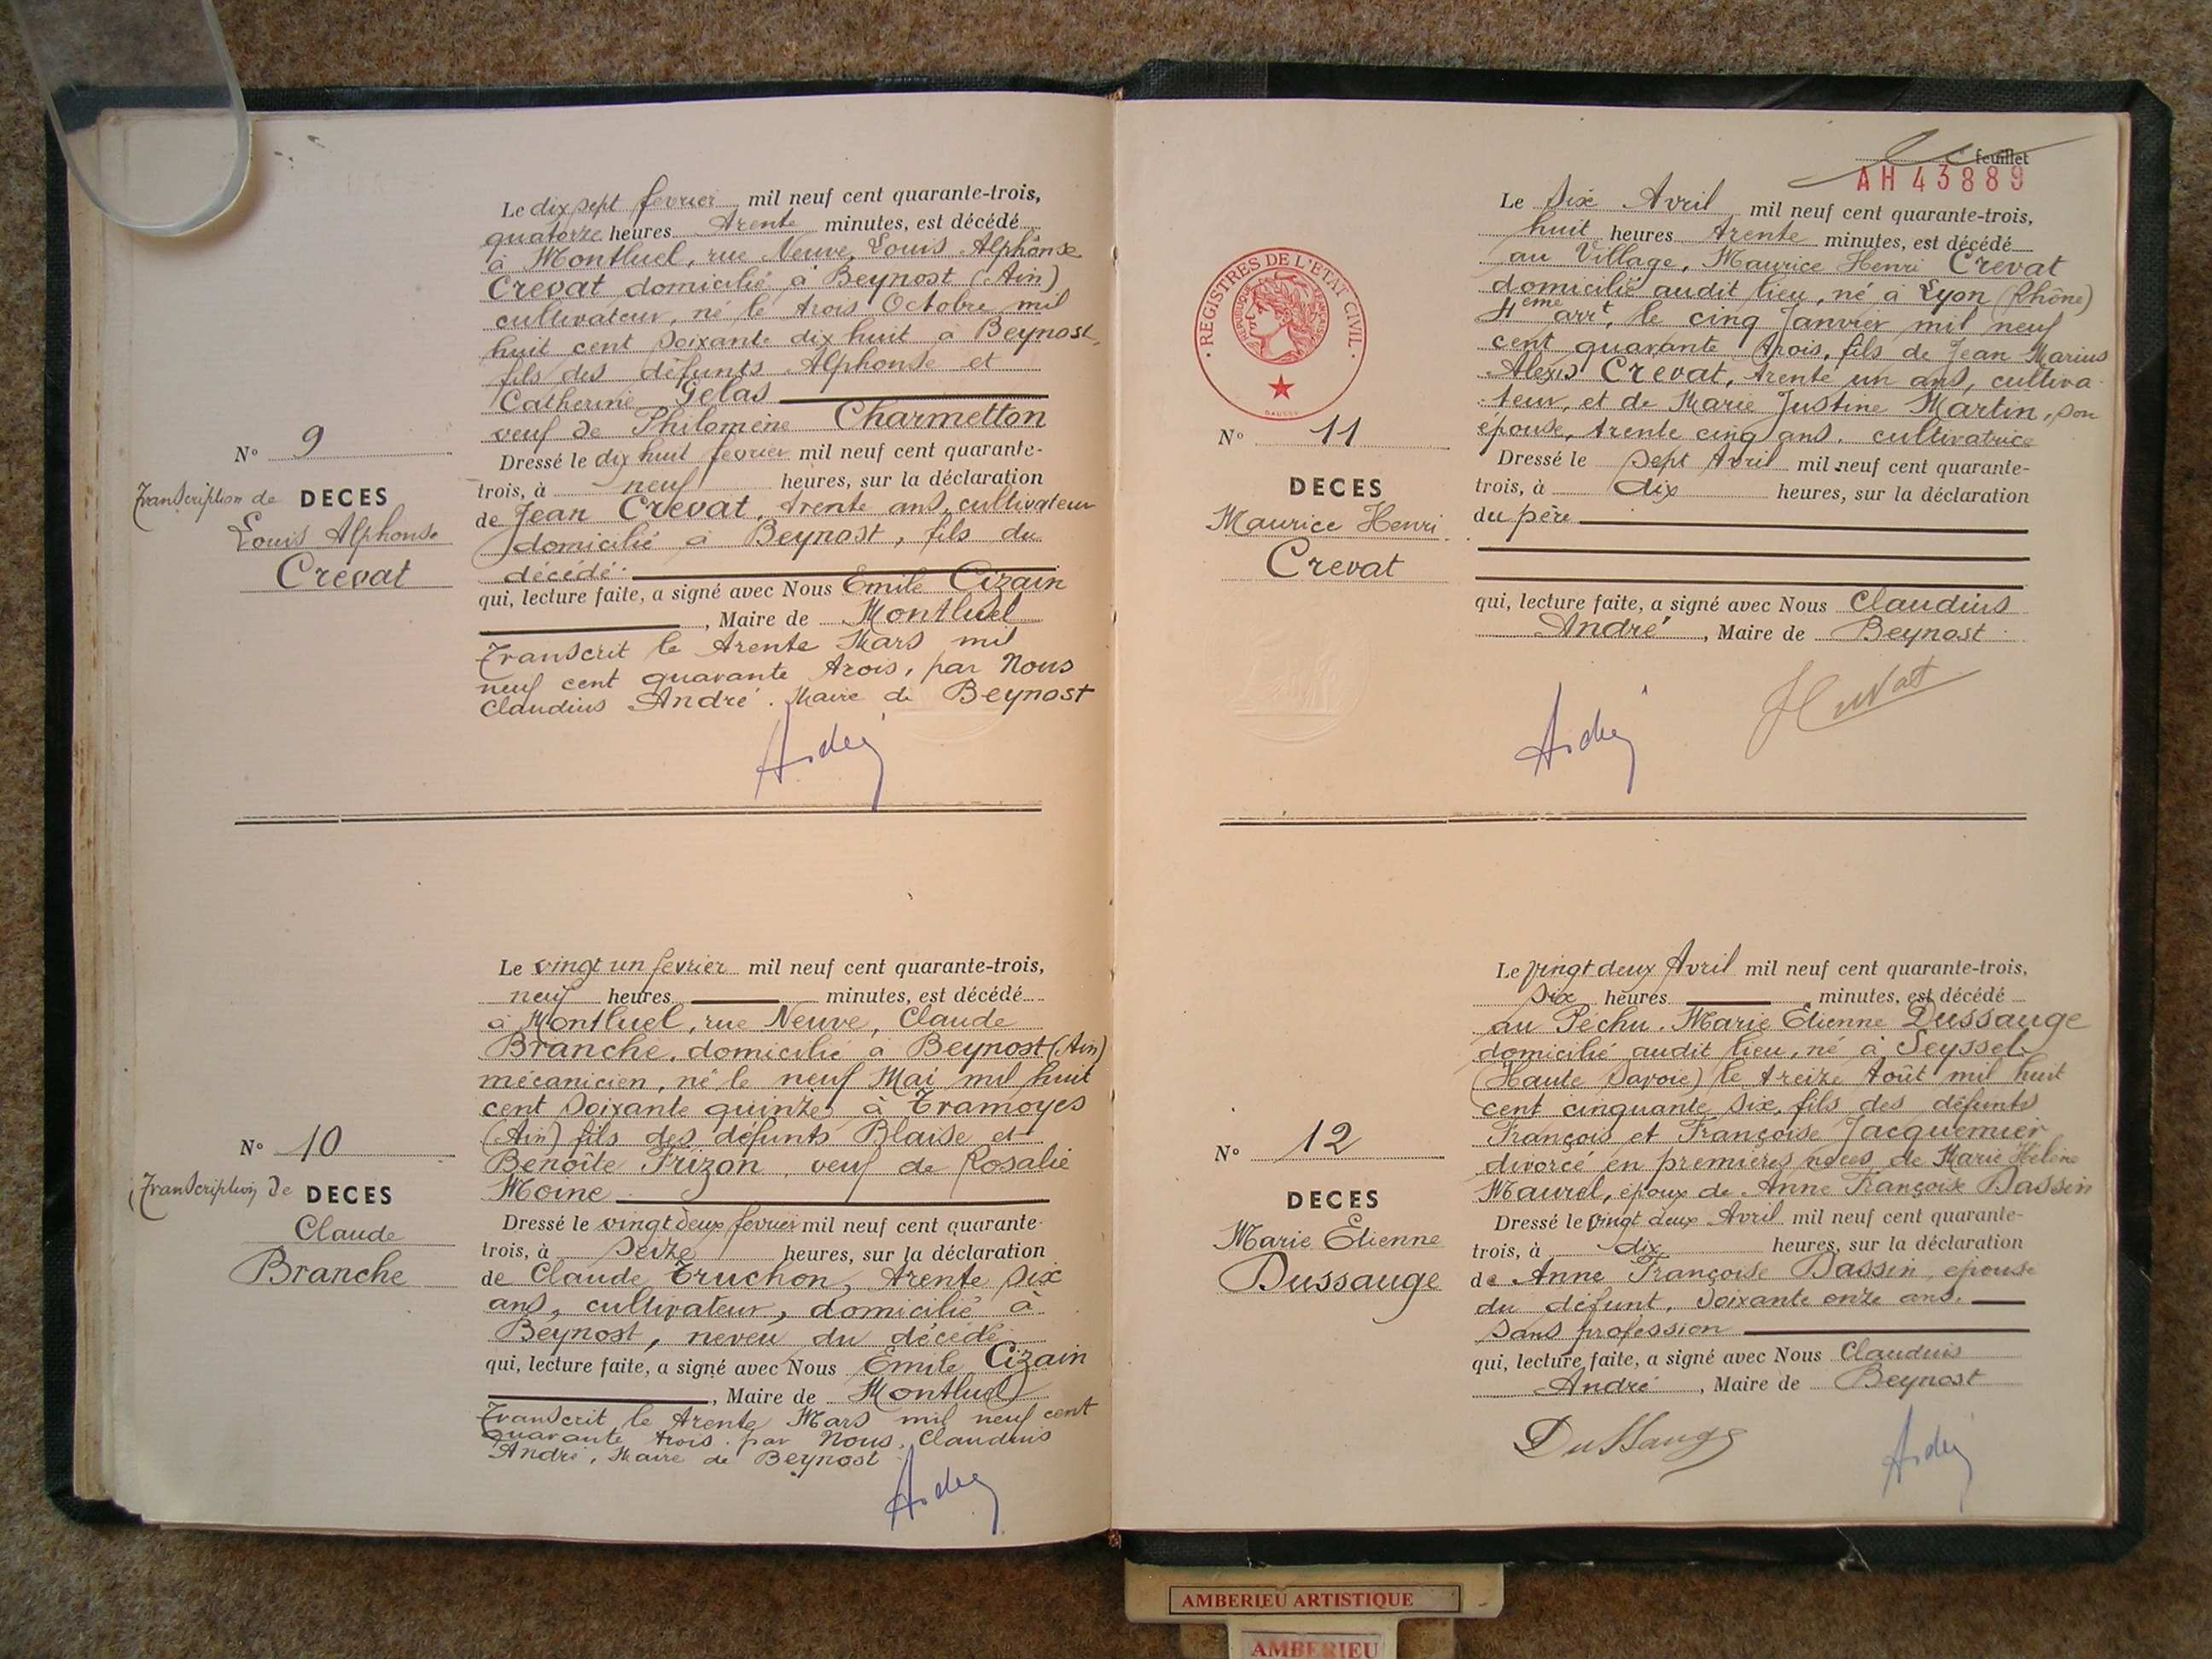 Le dix sept fevrier mil neuf cent quarante-trois,
quatorze heures trente minutes, est décédé
à Montluel, rue Neuve, Louis Alphonse
Crevat domicilié à Beynost (Ain)
cultivateur, né le trois Octobre mil
huit cent soixante dix huit à Beynost,
fils des défunts Alphonse et
Catherine Gelas
veuf de Philomène Charmetton
Dressé le dix huit fevrier mil neuf cent quarante-
trois, à neuf heures, sur la déclaration
de Jean Crevat, trente ans, cultivateur
domicilié à Beynost, fils du
décédé.
qui, lecture faite, a signé avec Nous Emile Cizain
, Maire de Montluel
Transcrit le trente Mars mil
neuf cent quarante trois, par Nous
Claudius André. Maire de Beynost
André
N° 9
Transcription de DECES
Louis Alphonse
Crevat
Le vingt un fevrier mil neuf cent quarante-trois,
neuf heures minutes, est décédé
à Montluel, rue Neuve, Claude
Branche, domicilié à Beynost (Ain)
mécanicien, né le neuf Mai mil huit
cent soixante quinze à Tramoyes
(Ain) fils des défunts Blaise et
Benoîte Frizon, veuf de Rosalie
Moine
Dressé le vingt deux fevrier mil neuf cent quarante-
trois, à seize heures, sur la déclaration
de Claude Truchon, trente six
ans, cultivateur, domicilié à
Beynost, neveu du décédé
qui, lecture faite, a signé avec Nous Emile Cizain
, Maire de Montluel
Transcrit le trente Mars mil neuf cent
quarante trois. par Nous, Claudius
André, Maire de Beynost
André
N° 10
Transcription de DECES
Claude
Branche
feuillet
AH 43889
Le six Avril mil neuf cent quarante-trois,
huit heures trente minutes, est décédé
au Village, Maurice Henri Crevat
domicilié audit lieu, né à Lyon (Rhône)
4eme arrt, le cinq Janvier mil neuf
cent quarante trois, fils de Jean Marius
Alexis Crevat, trente un ans, cultiva-
teur, et de Marie Justine Martin, son
épouse, trente cinq ans. cultivatrice
Dressé le sept Avril mil neuf cent quarante-
trois, à dix heures, sur la déclaration
du père
qui, lecture faite, a signé avec Nous Claudius
André, Maire de Beynost
André
REGISTRES DE L'ETAT CIVIL
REPUBLIQUE FRANÇAISE
N° 11
DECES
Maurice Henri
Crevat
Le vingt deux Avril mil neuf cent quarante-trois,
six heures minutes, est décédé
au Péchu. Marie Etienne Dussauge
domicilié audit lieu, né à Seyssel
(Haute Savoie) le treize Août mil huit
cent cinquante six, fils des défunts
François et Françoise Jacquemier
divorcé en premières noces de Marie Hélène
Maurel, époux de Anne Françoise Dassin
Dressé le vingt deux Avril mil neuf cent quarante-
trois, à dix heures, sur la déclaration
de Anne Françoise Dassin, epouse
du défunt, soixante onze ans.
sans profession
qui, lecture faite, a signé avec Nous Claudius
André, Maire de Beynost
Dussauge
André
N° 12
DECES
Marie Etienne
Dussauge
AMBERIEU ARTISTIQUE
AMBERIEU